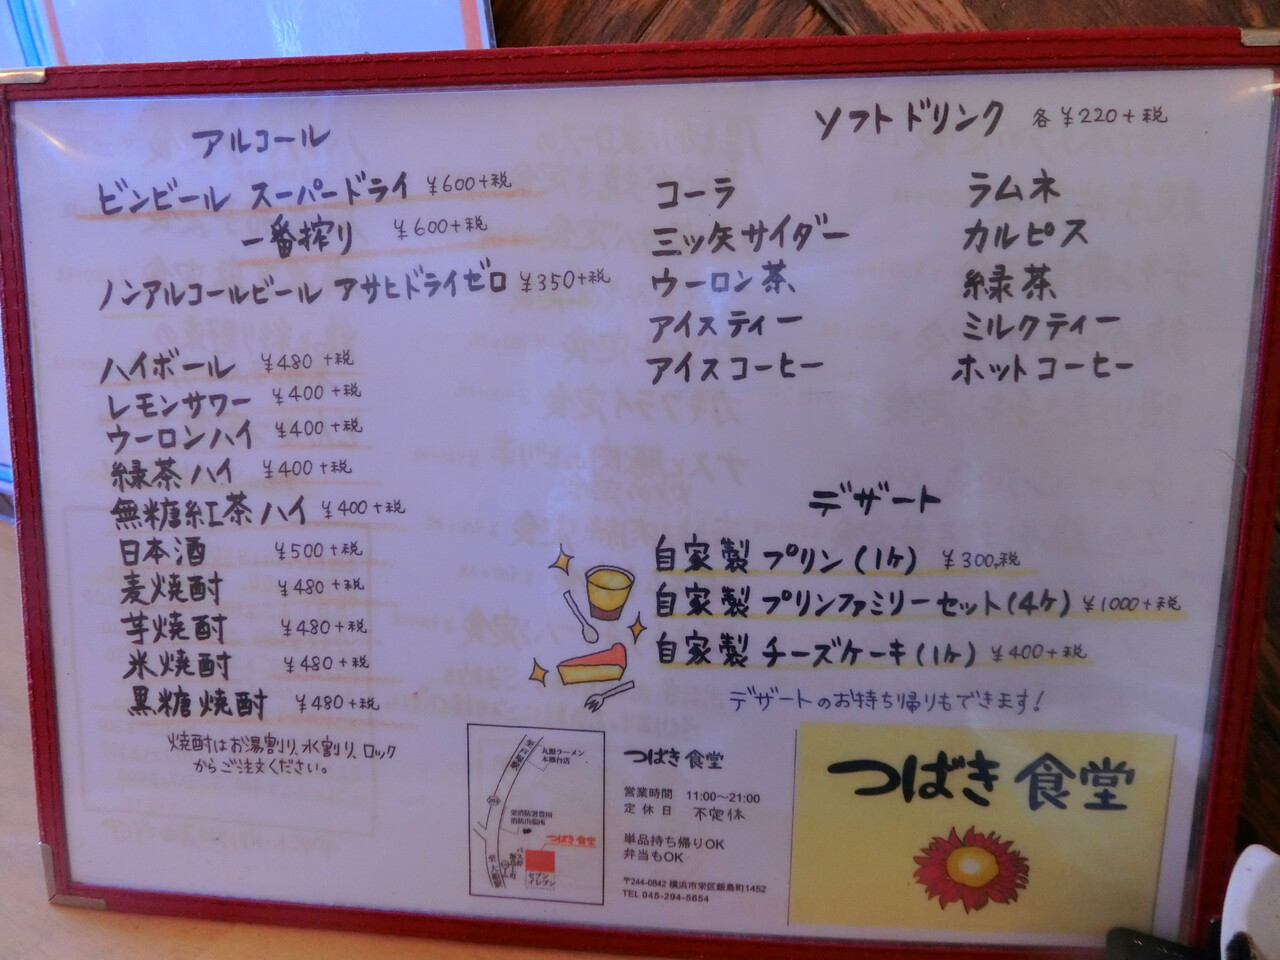 アルコール
ビンビール スーパードライ ¥600+税
一番搾り ¥600+税
ノンアルコールビール アサヒドライゼロ ¥350+税
ハイボール ¥480+税
レモンサワー ¥400+税
ウーロンハイ ¥400+税
緑茶ハイ ¥400+税
無糖紅茶ハイ ¥400+税
日本酒 ¥500+税
麦焼酎 ¥480+税
芋焼酎 ¥480+税
米焼酎 ¥480+税
黒糖焼酎 ¥480+税
焼酎はお湯割り、水割り、ロック
からご注文ください。
ソフトドリンク 各¥220+税
コーラ ラムネ
三ツ矢サイダー カルピス
ウーロン茶 緑茶
アイスティー ミルクティー
アイスコーヒー ホットコーヒー
デザート
自家製プリン(1ヶ) ¥300+税
自家製プリンファミリーセット(4ヶ) ¥1000+税
自家製チーズケーキ(1ヶ) ¥400+税
デザートのお持ち帰りもできます!
丸源ラーメン
本郷台店
栄消防署豊田
消防出張所
つばき食堂
セブン
イレブン
つばき食堂
営業時間 11:00〜21:00
定休日 不定休
単品持ち帰りOK
弁当もOK
〒244-0842 横浜市栄区飯島町1452
TEL 045-294-5654
つばき食堂